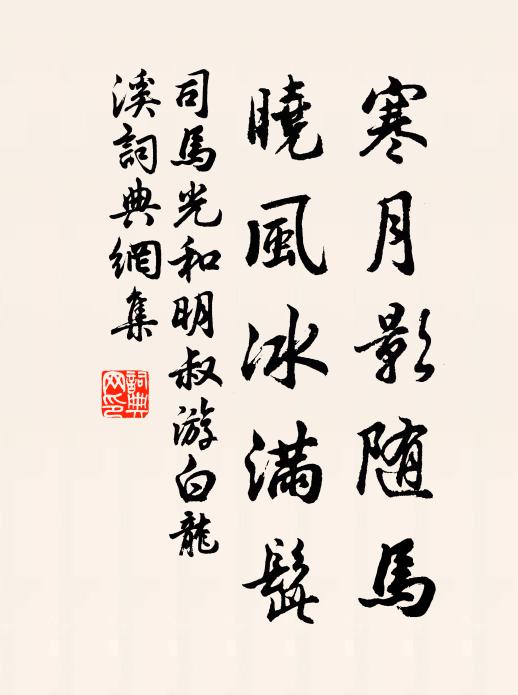 寒月影随馬
曉風冰滿髭
司馬光和明叔游白龍
溪詞典網集
詞典
网印